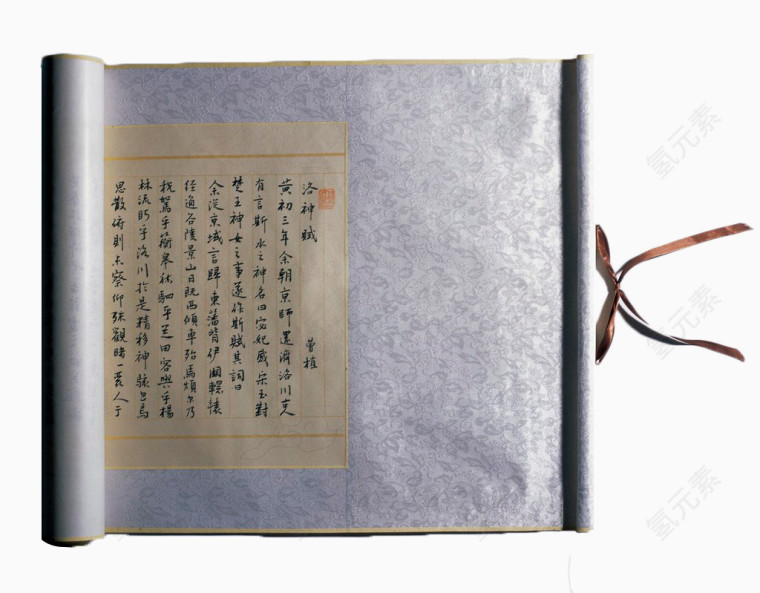 洛神賦 曹植
黃初三年余朝京師還濟洛川古人
有言斯水之神名曰宓妃感宋玉對
楚王神女之事遂作斯賦其詞曰
余從京域言歸東藩背伊闕轘轅
經通谷陵景山日既西傾車殆馬煩尔乃
税駕乎蘅皋秣駟乎芝田容與乎楊
林流眄乎洛川於是精移神駭忽焉
思散俯則未察仰殊觀睹一麗人于
氢元素
氢元素
氢元素